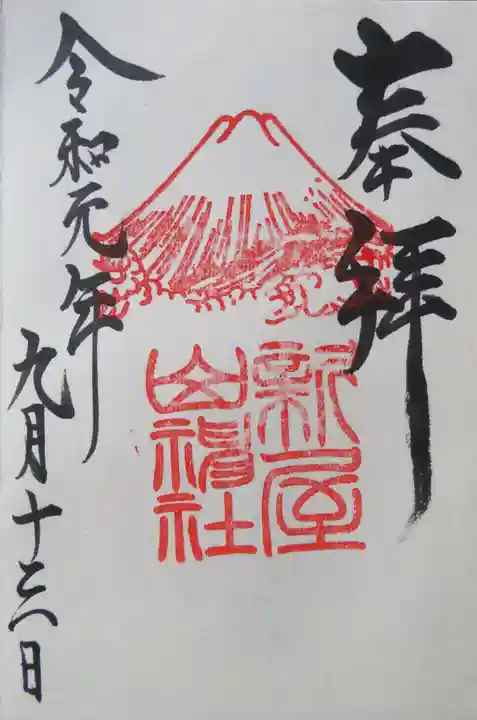 奉拝
新屋
山神社
令和元年
九月十三日